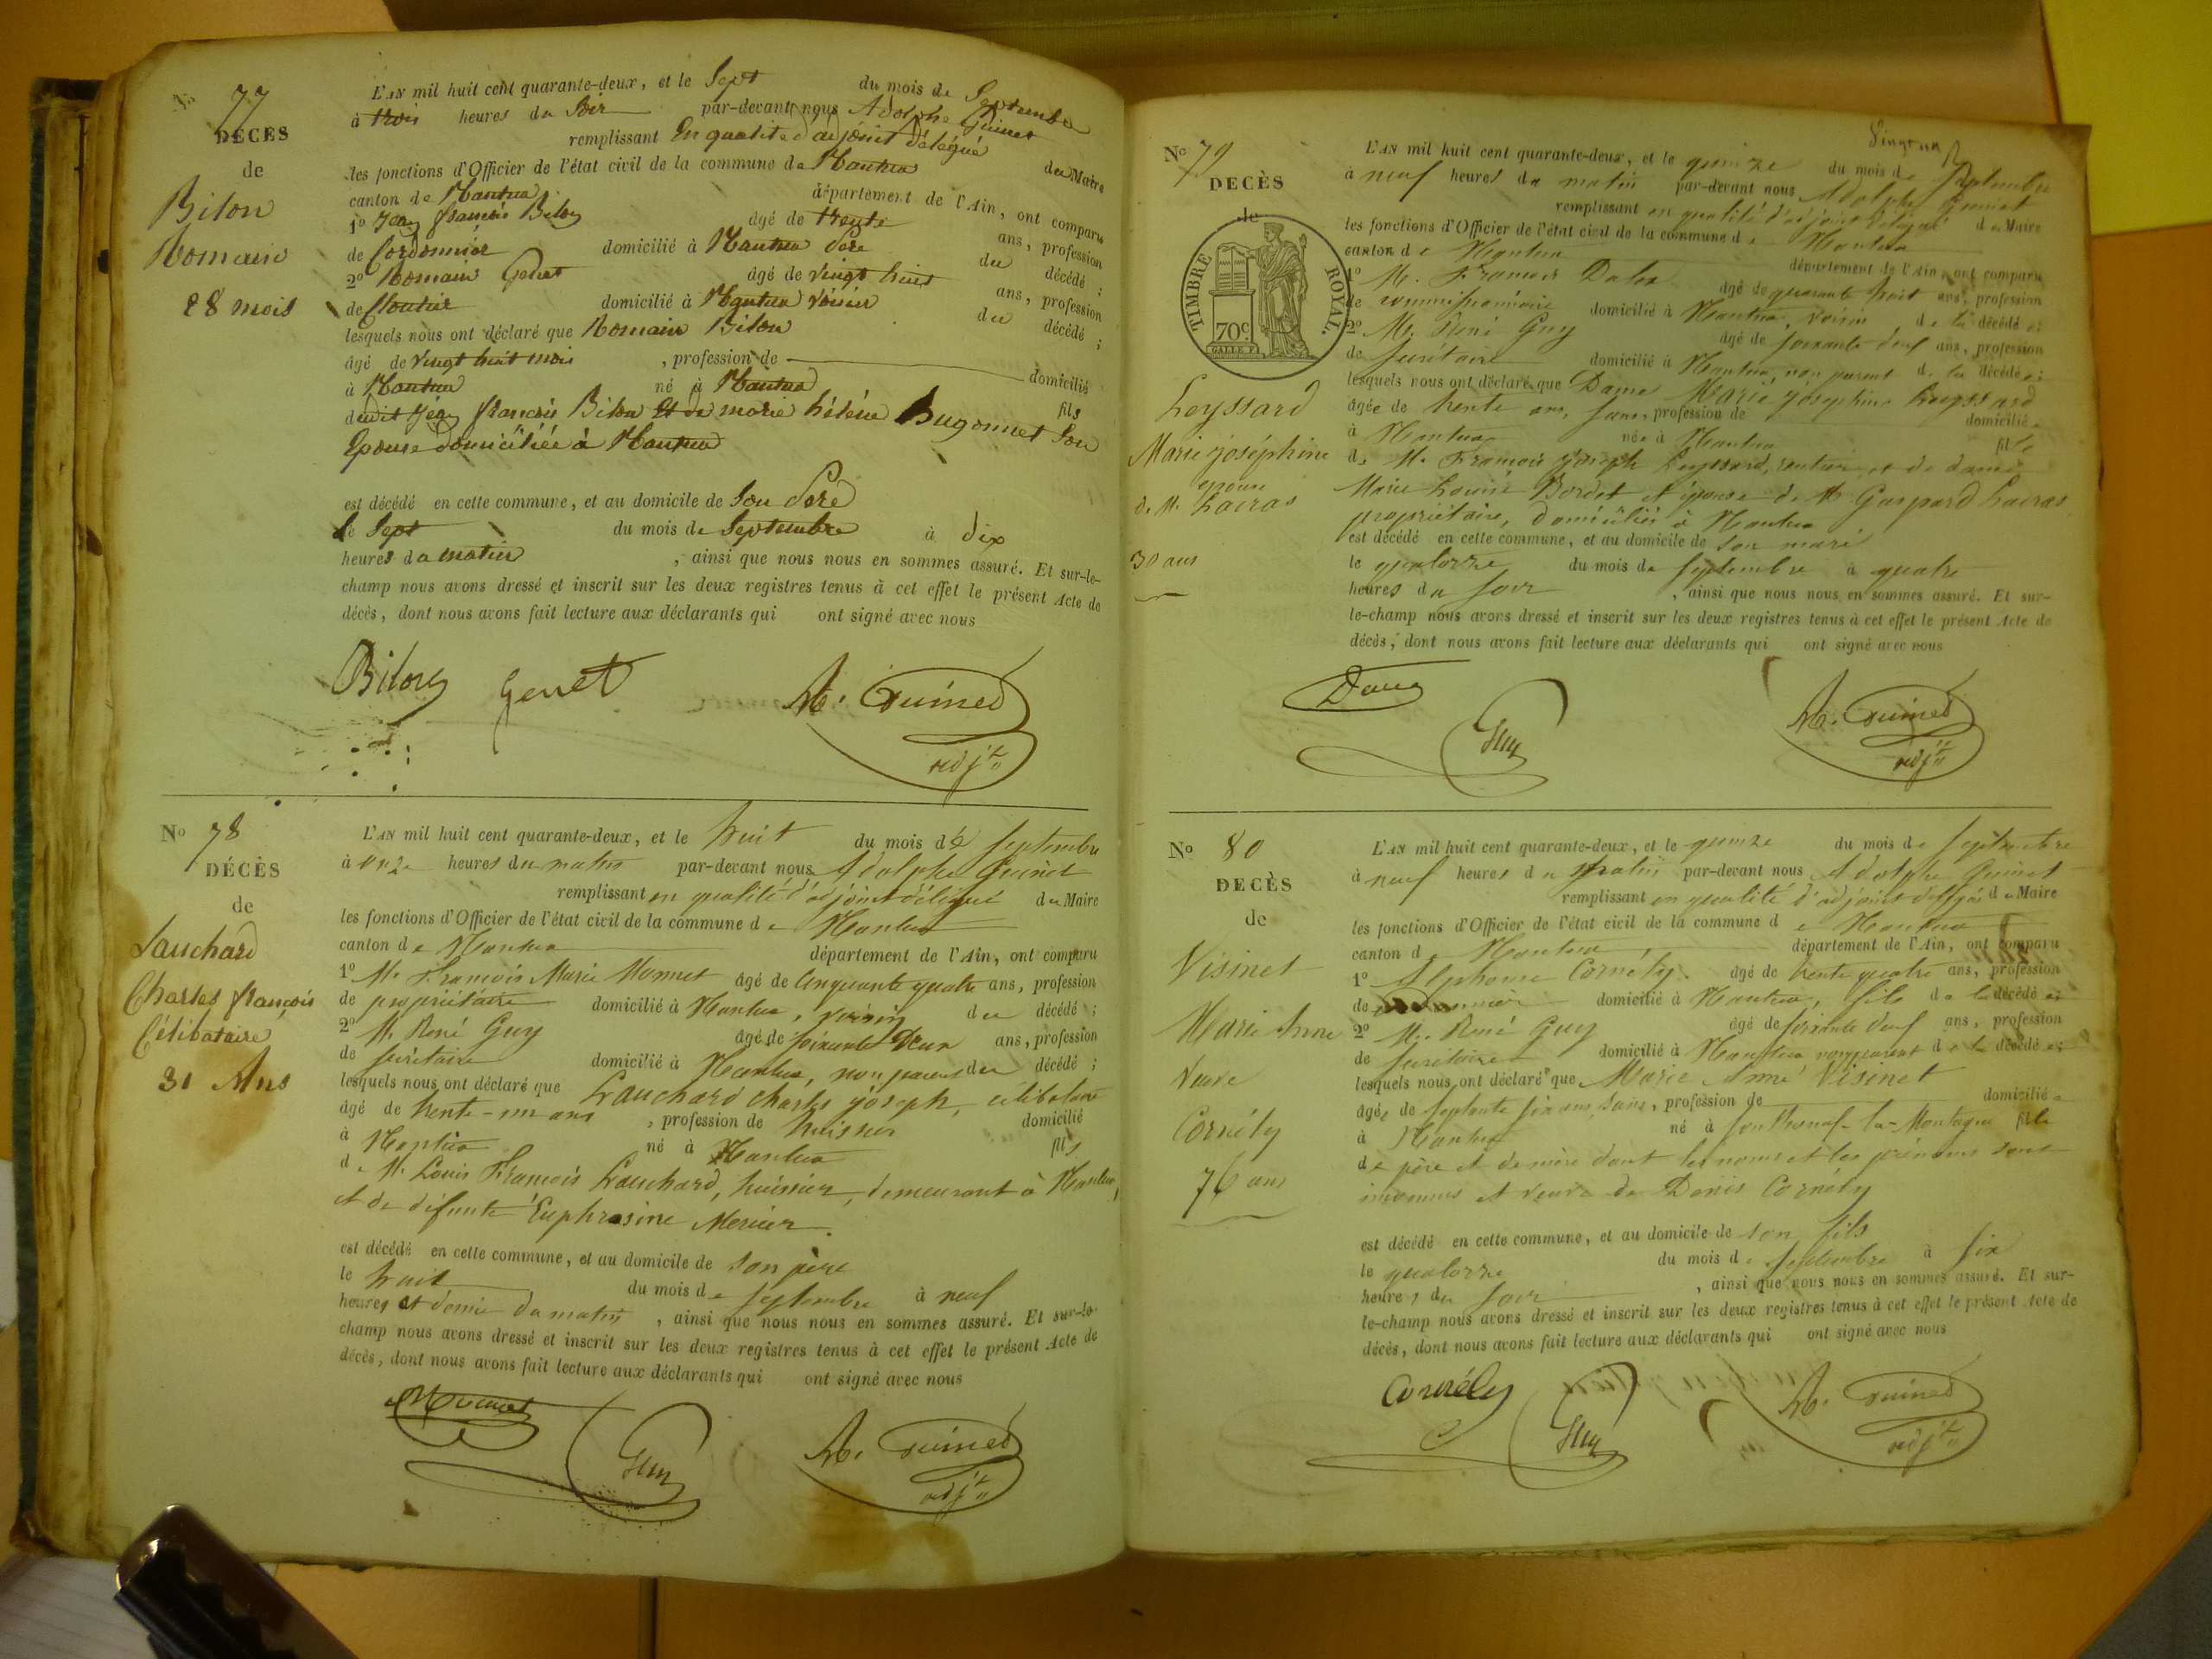 No 77
DÉCÈS
de
Bilon
Romain
28 mois
L'AN mil huit cent quarante-deux, et le Sept du mois de Septembre
à trois heures du Soir par-devant nous Adolphe Guinet
remplissant En qualité d'adjoint délégué du Maire
les fonctions d'Officier de l'état civil de la commune de Nantua
canton de Nantua département de l'Ain, ont comparu
1º Jean françois Bilon agé de trente ans, profession
de Cordonnier domicilié à Nantua Père du décédé ;
2º Romain Genet agé de vingt huit ans, profession
de Cloutier domicilié à Nantua Voisin du décédé ;
lesquels nous ont déclaré que Romain Bilon
âgé de vingt huit mois , profession de domicilié
à Nantua né à Nantua fils
dudit Jean françois Bilon Et de marie hélène Bugonnet Son
Epouse domiciliée à Nantua
est décédé en cette commune, et au domicile de Son Père
le Sept du mois de Septembre à dix
heures du matin , ainsi que nous nous en sommes assuré. Et sur-le-
champ nous avons dressé et inscrit sur les deux registres tenus à cet effet le présent Acte de
décès, dont nous avons fait lecture aux déclarants qui ont signé avec nous
Bilon Genet Ad. Guinet
adjt
No 78
DÉCÈS
de
Lauchard
Charles françois
Célibataire
31 Ans
L'AN mil huit cent quarante-deux, et le huit du mois de Septembre
à onze heures du matin par-devant nous Adolphe Guinet
remplissant en qualité d'adjoint délégué du Maire
les fonctions d'Officier de l'état civil de la commune de Nantua
canton de Nantua département de l'Ain, ont comparu
1º M. François Marie Monnet agé de Cinquante quatre ans, profession
de propriétaire domicilié à Nantua, voisin du décédé ;
2º M. René Guy agé de soixante deux ans, profession
de secrétaire domicilié à Nantua, non parent du décédé ;
lesquels nous ont déclaré que Lauchard charles joseph, célibataire
âgé de trente-un ans , profession de huissier domicilié
à Nantua né à Nantua fils
de M. Louis François Lauchard, huissier, demeurant à Nantua
et de défunte Euphrosine Mercier.
est décédé en cette commune, et au domicile de son père
le huit du mois de septembre à neuf
heures et demie du matin , ainsi que nous nous en sommes assuré. Et sur-le-
champ nous avons dressé et inscrit sur les deux registres tenus à cet effet le présent Acte de
décès, dont nous avons fait lecture aux déclarants qui ont signé avec nous
Monnet Guy Ad. Guinet
adjt
No 79
DECÈS
de
TIMBRE ROYAL.
70c
Leyssard
Marie joséphine
epouse
de M. Lacras
30 ans
L'AN mil huit cent quarante-deux, et le quinze du mois de Septembre
à neuf heures du matin par-devant nous Adolphe Guinet
remplissant en qualité d'adjoint délégué du Maire
les fonctions d'Officier de l'état civil de la commune de Nantua
canton de Nantua département de l'Ain, ont comparu
1º M. François agé de quarante huit ans, profession
de commissionnaire domicilié à Nantua, voisin de la décédée ;
2º M. René Guy agé de soixante deux ans, profession
de secrétaire domicilié à Nantua, non parent de la décédée ;
lesquels nous ont déclaré que Dame Marie joséphine Leyssard
âgée de trente ans, sans, profession de domiciliée
à Nantua née à Nantua fille
de M. François joseph Leyssard, rentier, et de dame
Marie Louise Bordet et épouse de M. Gaspard Lacras
propriétaire, domiciliés à Nantua
est décédé en cette commune, et au domicile de son mari
le quatorze du mois de septembre à quatre
heures du soir , ainsi que nous nous en sommes assuré. Et sur-
le-champ nous avons dressé et inscrit sur les deux registres tenus à cet effet le présent Acte de
décès, dont nous avons fait lecture aux déclarants qui ont signé avec nous
Guy Ad. Guinet
adjt
No 80
DECÈS
de
Visinet
Marie Anne
Veuve
Cornély
76 ans
L'AN mil huit cent quarante-deux, et le quinze du mois de Septembre
à neuf heures du matin par-devant nous Adolphe Guinet
remplissant en qualité d'adjoint délégué du Maire
les fonctions d'Officier de l'état civil de la commune de Nantua
canton de Nantua département de l'Ain, ont comparu
1º Alphonse Cornély. agé de trente quatre ans, profession
de domicilié à Nantua, fils de la décédée ;
2º M. René Guy agé de soixante deux ans, profession
de secrétaire domicilié à Nantua non parent de la décédée ;
lesquels nous ont déclaré que Marie Anne Visinet
âgée de septante six ans, sans, profession de domiciliée
à Nantua né à Sonthonnax-la-Montagne fille
de père et de mère dont les noms et les prénoms sont
inconnus et veuve de Denis Cornély
est décédé en cette commune, et au domicile de son fils
le quatorze du mois de septembre à six
heures du soir , ainsi que nous nous en sommes assuré. Et sur-
le-champ nous avons dressé et inscrit sur les deux registres tenus à cet effet le présent Acte de
décès, dont nous avons fait lecture aux déclarants qui ont signé avec nous
Cornély Guy Ad. Guinet
adjt